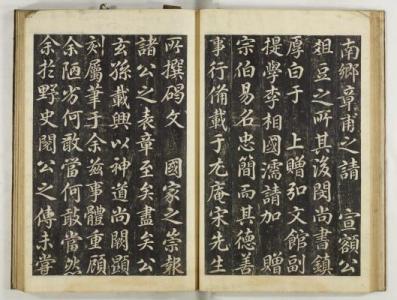 南鄉章甫之請 宣額公
俎豆之所其後閔尚書鎮
厚白于 上贈弘文館副
提學李相國濡請加 贈
宗伯易名忠簡而其德善
事行備載于尤庵宋先生
所撰碣文 國家之崇報
諸公之表章至矣盡矣公
玄孫載興以神道尚闕顯
刻屬筆于余茲事體重顧
余陋劣何敢當何敢當然
余於野史閱公之傳未嘗